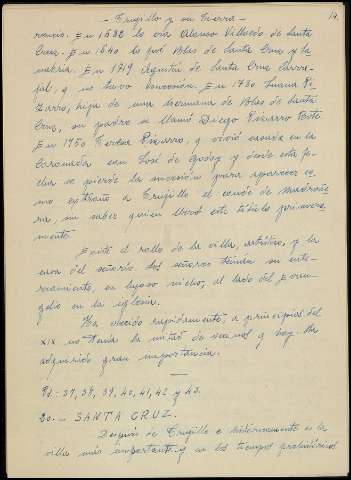 - Trujillo y su tierra -
14.
rencio. En 1632 lo era Alonso Villacis de Santa
Cruz. En 1640 lo fué Blas de Santa Cruz y lo
. En 1719 Agustín de Santa Cruz Carva-
jal, y no tuvo sucesión. En 1730 Luisa Pi-
zarro, hija de una hermana de Blas de Santa
Cruz, su padre se llamó Diego Pizarro
En 1750 Teresa Pizarro, y vivió casada en la
Coronada con José de Godoy y desde esta fe-
cha se pierde la sucesión para aparecer co-
mo extraño a Trujillo el conde de
sin saber quien llevó este título primera-
mente.
Existe el rollo de la villa, artístico, y la
casa del señorío. Los señores tenían su ente-
rramiento, en lujoso nicho, al lado del Evan-
gelio en la iglesia.
Ha crecido rapidamente; a principios del
XIX no tenía la mitad de vecinos y hoy ha
adquirido gran importancia.
Ls. 37, 38, 39, 40, 41, 42 y 43.
20.- SANTA CRUZ.
Después de Trujillo e históricamente es la
villa más importante y en los tiempos prehistóricos